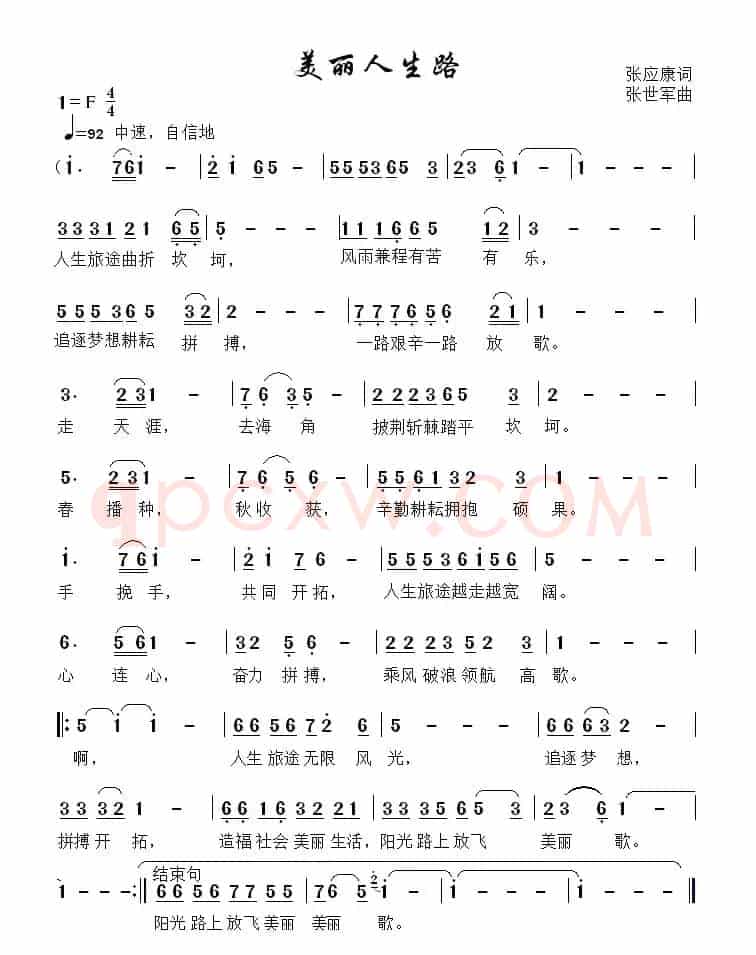 美丽人生路
张应康词
张世军曲
1=F 4/4
♩=92 中速，自信地
(i· 76i - | 2 i 65 - | 555365 3 | 23 6 1 - | 1 - - - |
333121 65 | 5 - - - | 111665 12 | 3 - - - |
人生旅途曲折 坎 坷， 风雨兼程有苦 有 乐，
555365 32 | 2 - - - | 777656 21 | 1 - - - |
追逐梦想耕耘 拼 搏， 一路艰辛一路 放 歌。
3· 231 - | 76 35 - | 222365 3 | 2 - - - |
走 天 涯， 去海 角 披荆斩棘踏平 坎 坷。
5· 231 - | 76 56 - | 556132 3 | 2 - - - |
春 播 种， 秋收 获， 辛勤耕耘拥抱 硕 果。
i· 76i - | 2i 76 - | 55536i56 | 2 - - - |
手 挽 手， 共同 开 拓， 人生旅途越走越宽 阔。
6· 561 - | 32 56 - | 22 23 52 3 | 1 - - - |
心 连 心， 奋力 拼 搏， 乘风 破浪 领航 高 歌。
|: 5 i i - | 66 56 72 6 | 5 - - - | 66 63 2 - |
啊， 人生 旅途 无限 风 光， 追逐 梦 想，
33 32 1 - | 66 16 33 21 | 22 36 5 3 | 23 6 1 |
拼搏 开 拓， 造福 社会 美丽 生活， 阳光 路上 放飞 美丽 歌。
结束句
1 - - :| 66 56 77 55 | 76 5 2 i - | i - - - | i - - - |
阳光 路上 放飞 美丽 美丽 歌。
qpcxw.COM